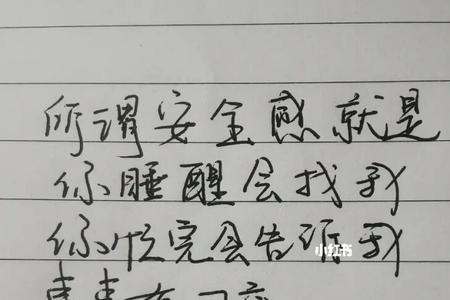 所谓安全感就是
你睡醒会找我
你忙完会告诉我
小红书